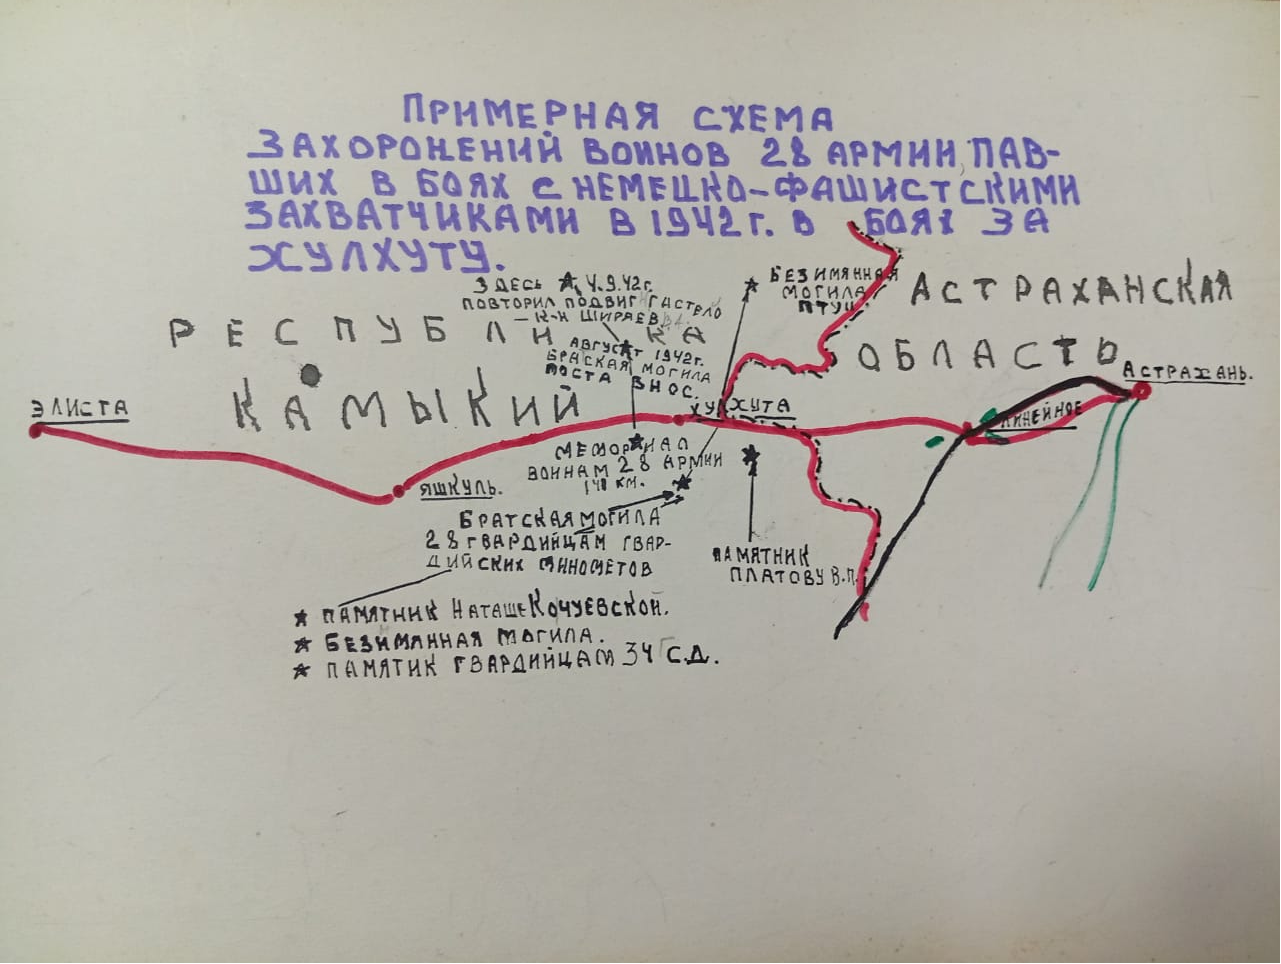 ПРИМЕРНАЯ СХЕМА
ЗАХОРОНЕНИЙ ВОИНОВ 28 АРМИИ, ПАВ-
ШИХ В БОЯХ С НЕМЕЦКО-ФАШИСТСКИМИ
ЗАХВАТЧИКАМИ В 1942 Г. В БОЯХ ЗА
ХУЛХУТУ.
ЗДЕСЬ 4.9.42г.
ПОВТОРИЛ ПОДВИГ ГАСТЕЛО
– К-Н ШИРАЕВ
БЕЗИМЯННАЯ
МОГИЛА
АСТРАХАНСКАЯ
ОБЛАСТЬ
РЕСПУБЛИКА
КАМЫКИЙ
АВГУСАТ 1942г.
БРАСКАЯ МОГИЛА
ПОСТА ВНОС.
ЭЛИСТА
ХУЛХУТА
АСТРАХАНЬ.
ЛИНЕЙНОЕ
МЕМОРИАЛ
ВОИНАМ 28 АРМИИ
140 КМ.
ЯШКУЛЬ.
БРАТСКАЯ МОГИЛА
28 ГВАРДИЙЦАМ ГВАР-
ДИЙСКИХ МИНОМЕТОВ
ПАМЯТНИК
ПЛАТОВУ В.П.
ПАМЯТНИК НАТАШЕ КОЧУЕВСКОЙ.
БЕЗИМЯННАЯ МОГИЛА.
ПАМЯТИК ГВАРДИЙЦАМ 34 С.Д.